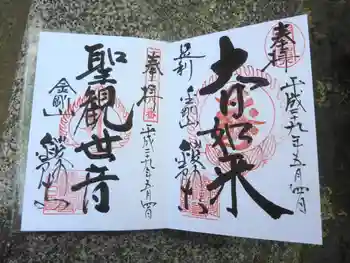 奉拝
平成二九年五月四日
大日如来
足利
金剛山
奉拝
平成二九年五月四日
聖観世音
金剛山